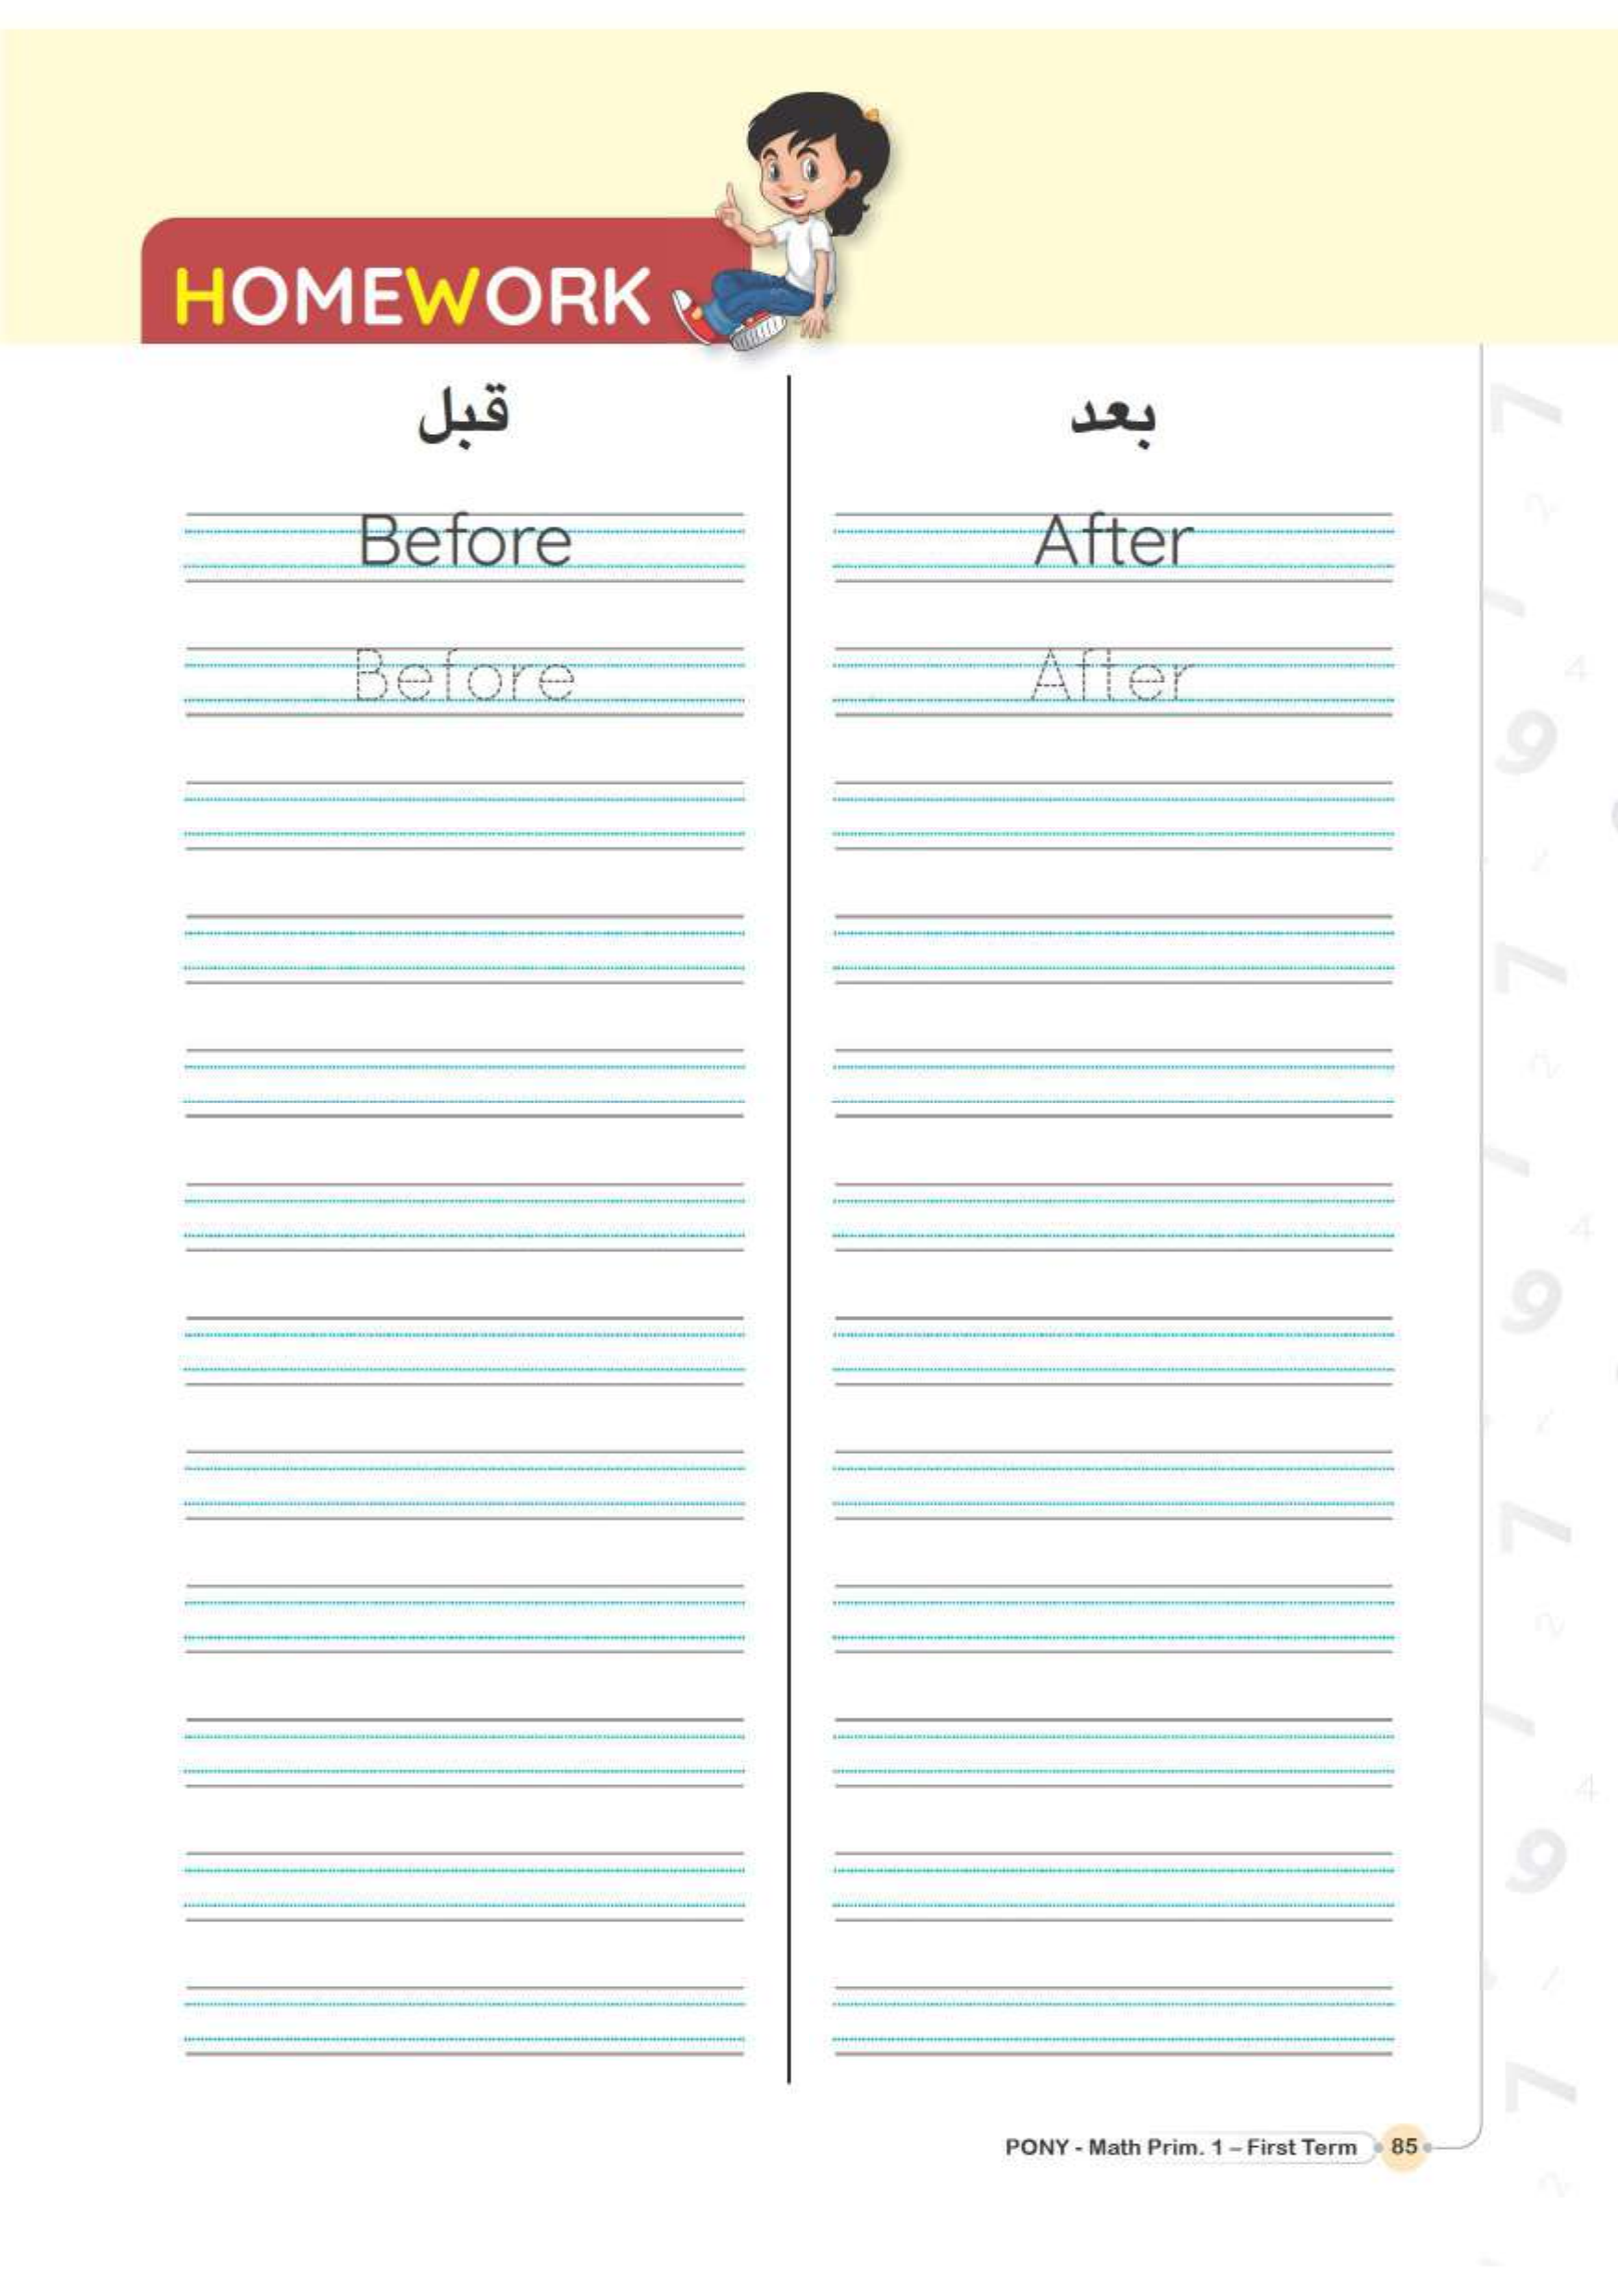 HOMEWORK
قبل
بعد
Before
After
Before
After
PONY - Math Prim. 1 – First Term
85